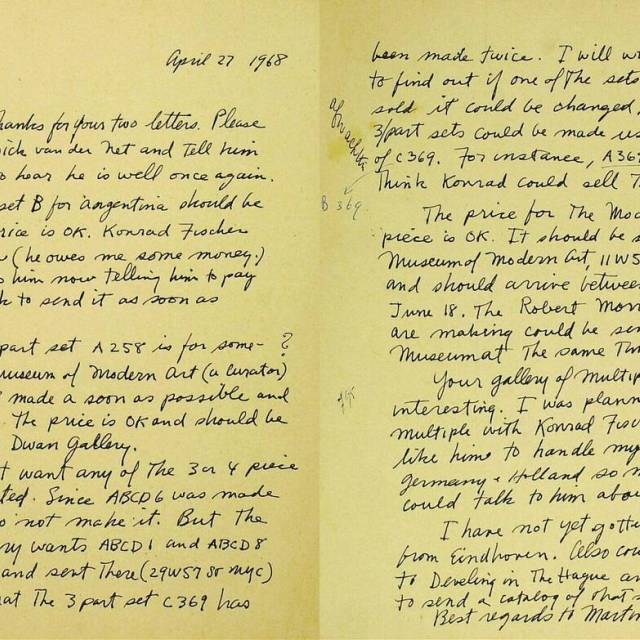 April 27 1968
hanks for your two letters. Please
ick van der Net and tell him
o hear he is well once again.
set B for Argentina should be
rice is OK. Konrad Fischer
(he owes me some money.)
s him now telling him to pay
k to send it as soon as
part set A258 is for some- ?
useum of Modern Art (a curator)
made a soon as possible and
. The price is OK and should be
Dwan Gallery.
t want any of The 3 or 4 piece
ted. Since ABCD6 was made
o not make it. But The
ry wants ABCD1 and ABCD8
and sent There (29W57 St NYC)
at The 3 part set C369 has
been made twice. I will w
to find out if one of The sets
sold it could be changed,
3/part sets could be made us
of C369. For instance, A369
Think Konrad could sell T
B 369
The price for The Mod
piece is OK. It should be s
Museum of Modern Art, 11W5
and should arrive between
June 18. The Robert Morr
are making could be sen
Museum at The same Tim
Your gallery of multip
interesting. I was plann
multiple with Konrad Fisc
like hime to handle my
Germany + Holland so m
could talk to him abou
I have not yet gotte
from Eindhoven. Also cou
to Develing in The Hague an
to send a catalog of that s
Best regards to Martin